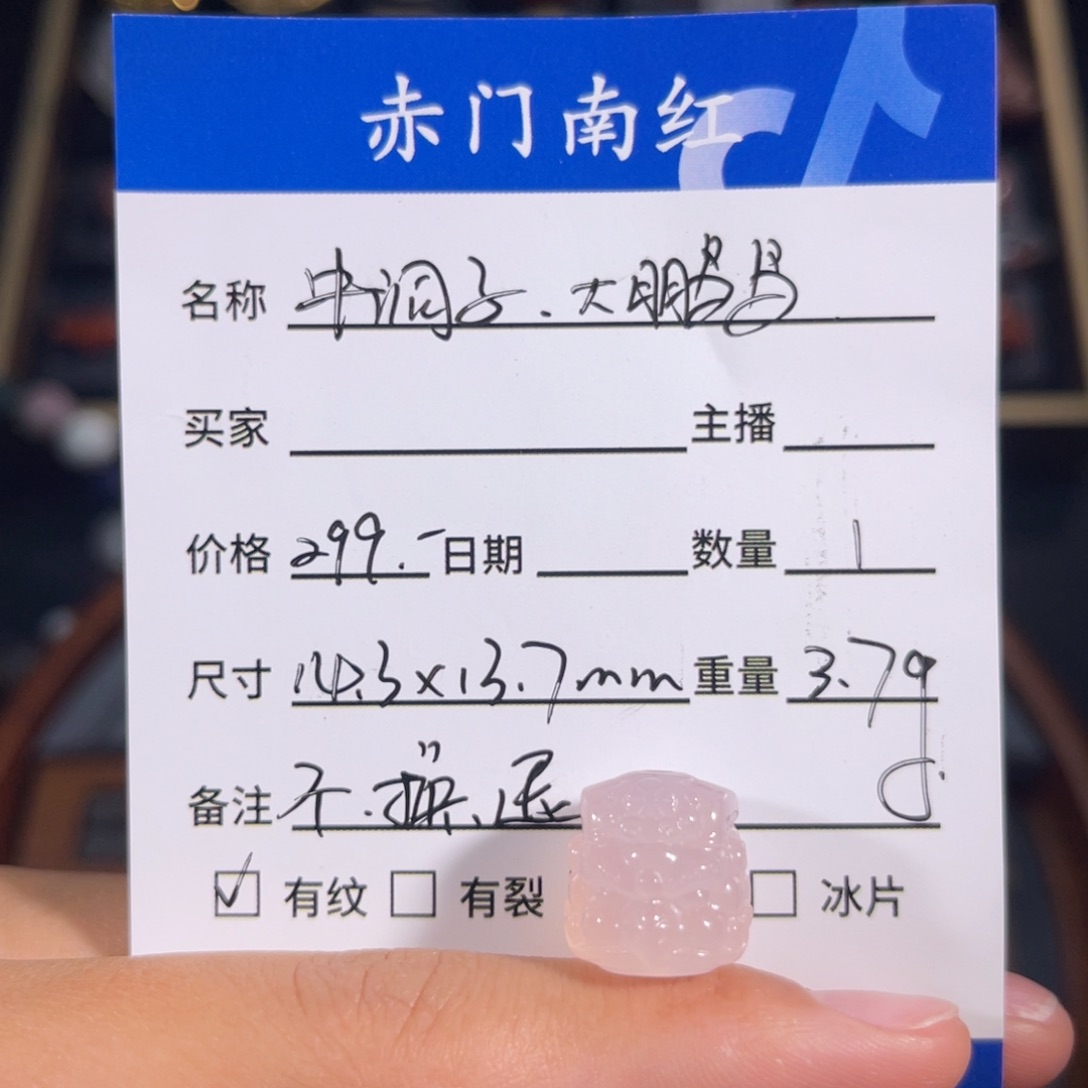 赤门南红
名称 牛洞子.大鹏鸟
买家 主播
价格 299.- 日期 数量 1
尺寸 14.3×13.7mm 重量 3.7g
备注 不.换.退
✓ 有纹 有裂 冰片